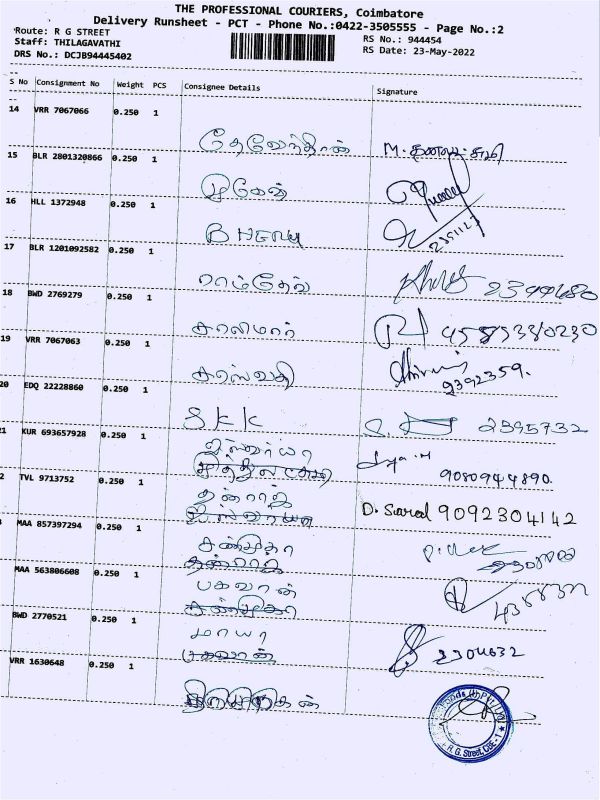 THE PROFESSIONAL COURIERS, Coimbatore
Delivery Runsheet - PCT - Phone No.:0422-3505555 - Page No.:2
Route: R G STREET
RS No.: 944454
Staff: THILAGAVATHI
RS Date: 23-May-2022
DRS No.: DCJB94445402
S No Consignment No Weight PCS Consignee Details Signature
14 VRR 7067066 0.250 1
தேவேந்திரன்
15 BLR 2801320866 0.250 1
முகேஷ்
16 HLL 1372948 0.250 1
BHERU
17 BLR 1201092582 0.250 1
ராம்தேவ் 2394680
18 BWD 2769279 0.250 1
சாலிமார் 9585380230
19 VRR 7067063 0.250 1
சரஸ்வதி 2392359.
20 EDQ 22228860 0.250 1
S.K.K 2395732
21 KUR 693657928 0.250 1
ஐஸ்வர்யா
9080944890.
2 TVL 9713752 0.250 1
தன்ராஜ் D. Sarod 9092304142
MAA 857397294 0.250 1
சண்முகா
தன்ராஜ்
MAA 563806608 0.250 1
பகவான்
சண்முகா
BWD 2770521 0.250 1
மாயா 2304632
பகவான்
VRR 1630648 0.250 1
R. G. Street, CBE - 1